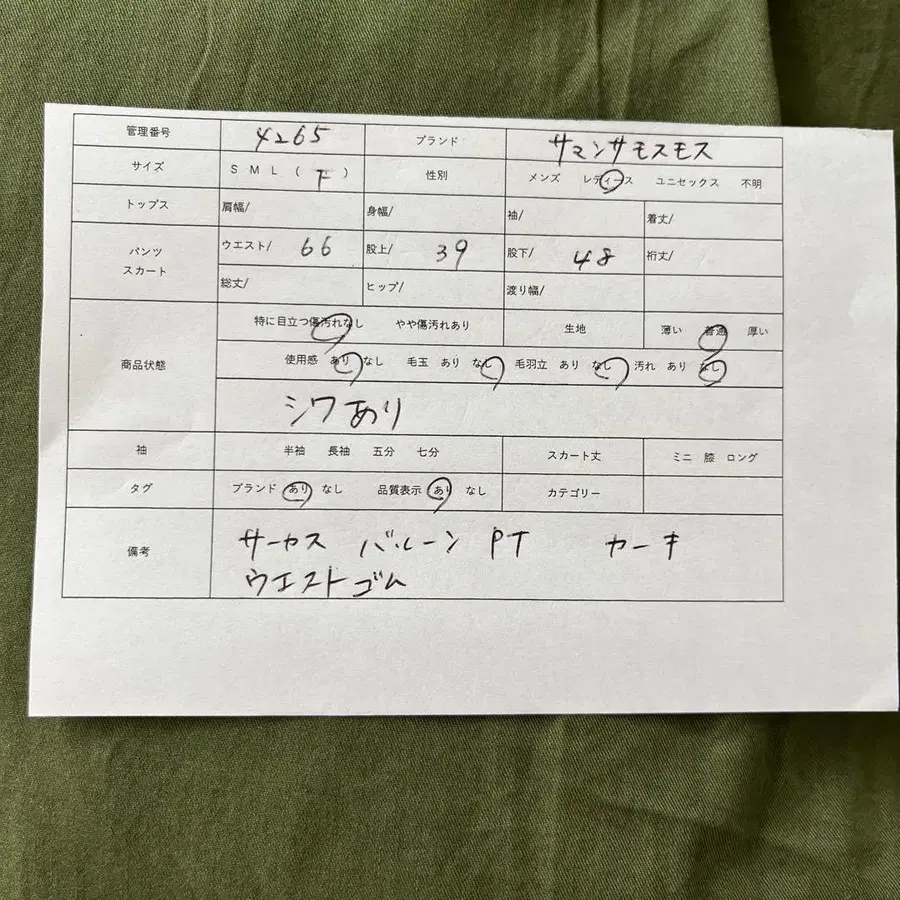 管理番号 4265 ブランド サマンサモスモス
サイズ S M L ( F ) 性別 メンズ レディース ユニセックス 不明
トップス 肩幅/ 身幅/ 袖/ 着丈/
パンツ スカート ウエスト/ 66 股上/ 39 股下/ 48 裄丈/
総丈/ ヒップ/ 渡り幅/
商品状態 特に目立つ傷汚れなし やや傷汚れあり 生地 薄い 普通 厚い
使用感 あり なし 毛玉 あり なし 毛羽立 あり なし 汚れ あり なし
シワあり
袖 半袖 長袖 五分 七分 スカート丈 ミニ 膝 ロング
タグ ブランド あり なし 品質表示 あり なし カテゴリー
備考 サーカス バルーン PT カーキ
ウエストゴム